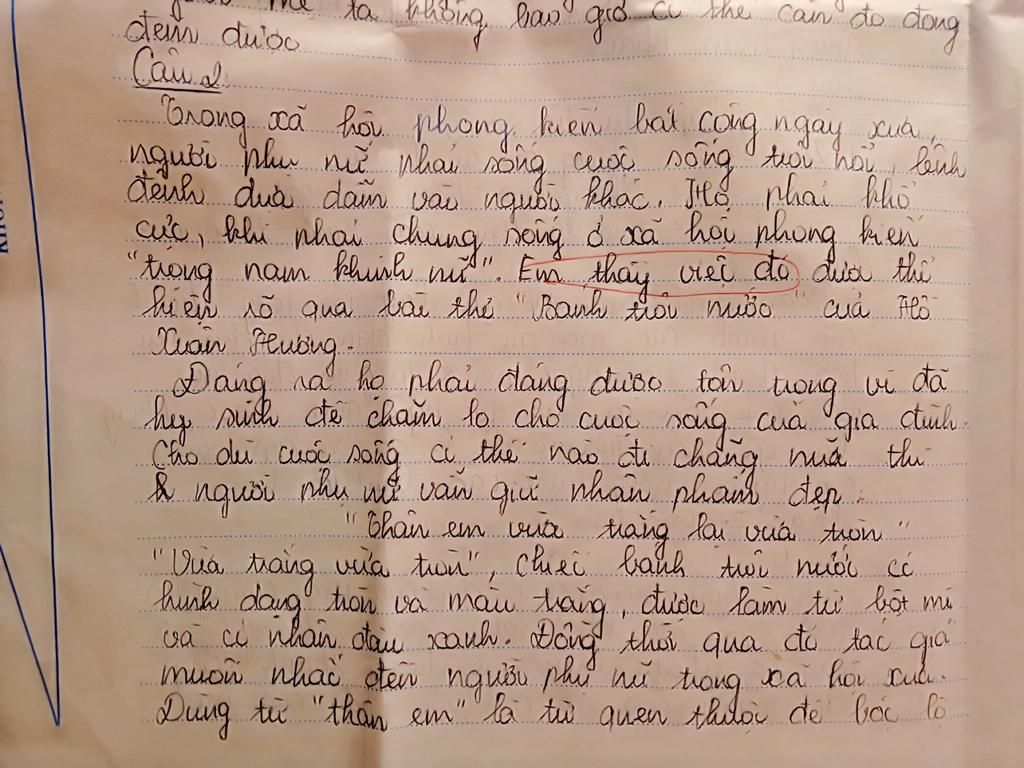 mẹ ta không bao giờ có thể cân đo đong
đếm được
Câu 2
Trong xã hội phong kiến bất công ngày xưa,
người phụ nữ phải sống cuộc sống trôi nổi, lênh
đênh dựa dẫm vào người khác. Họ phải khổ
cực, khi phải chung sống ở xã hội phong kiến
"trọng nam khinh nữ". Em thấy việc đó được thể
hiện rõ qua bài thơ "Bánh trôi nước" của Hồ
Xuân Hương.
Đáng ra họ phải đáng được tôn trọng vì đã
hy sinh để chăm lo cho cuộc sống của gia đình.
Cho dù cuộc sống có thế nào đi chăng nữa thì
người phụ nữ vẫn giữ nhân phẩm đẹp.
"Thân em vừa trắng lại vừa tròn"
"Vừa trắng vừa tròn", chiếc bánh trôi nước có
hình dạng tròn và màu trắng, được làm từ bột mì
và có nhân đậu xanh. Đồng thời qua đó tác giả
muốn nhắc đến người phụ nữ trong xã hội xưa.
Dùng từ "thân em" là từ quen thuộc để bộc lộ